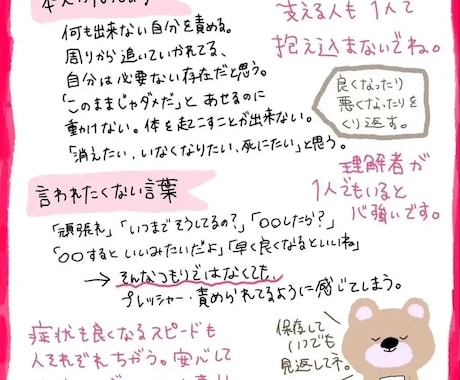 何も出来ない自分を責める。
周りから追いていかれてる、
自分は必要ない存在だと思う。
「このままじゃダメだ」とあせるのに
動けない。体を起こすことが出来ない。
「消えたい、いなくなりたい、死にたい」と思う。
支える人も1人で
抱え込まないでね。
良くなったり
悪くなったりを
くり返す。
理解者が
1人でもいると
心強いです。
言われたくない言葉
「頑張れ」「いつまでそうしてるの?」「〇〇したら?」
「〇〇するといいみたいだよ」「早く良くなるといいね」
→そんなつもりではなくても、
プレッシャー・責められてるように感じてしまう。
症状も良くなるスピードも
人それぞれちがう。安心して
保存して
いつでも
見返してネ。